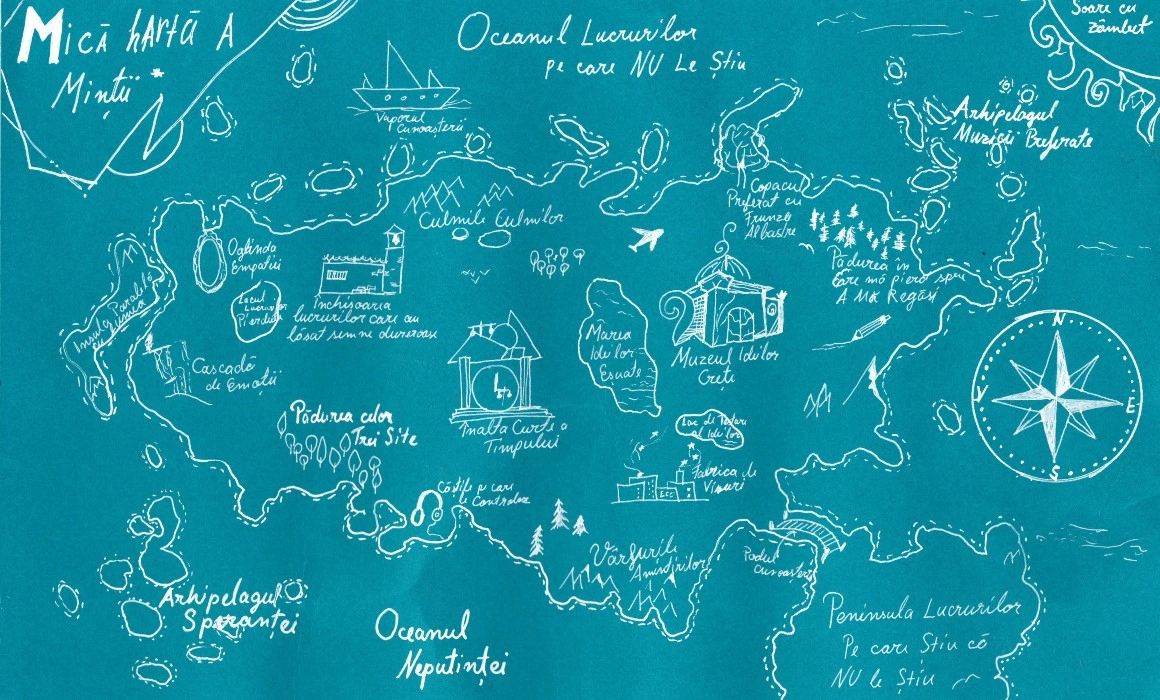 Mică hartă a
Minții*
N
Oceanul Lucrurilor
pe care NU Le Știu
Soare cu
zâmbet
Vaporul
Cunoașterii
Arhipelagul
Muzicii Preferate
Culmile Culmilor
Copacul
Preferat cu
Frunze
Albastre
Oglinda
Empatiei
Pădurea în
Care mă pierd spre
A Mă Regăsi
Lacul
Lucrurilor
Pierdute
Închisoarea
lucrurilor care au
lăsat semne dureroase
Cascadă
de Emoții
Marea
Ideilor
Eșuate
Muzeul Ideilor
Crețe
N
V
E
S
Pădurea celor
Trei Site
Înalta Curte a
Timpului
Lac de Testare
al Ideilor
Fabrica de
Visuri
Căștile pe care
le Controlez
Vârfurile
Amintirilor
Podul
Cunoașterii
Arhipelagul
Speranței
Oceanul
Neputinței
Peninsula Lucrurilor
Pe care Știu că
NU le Știu